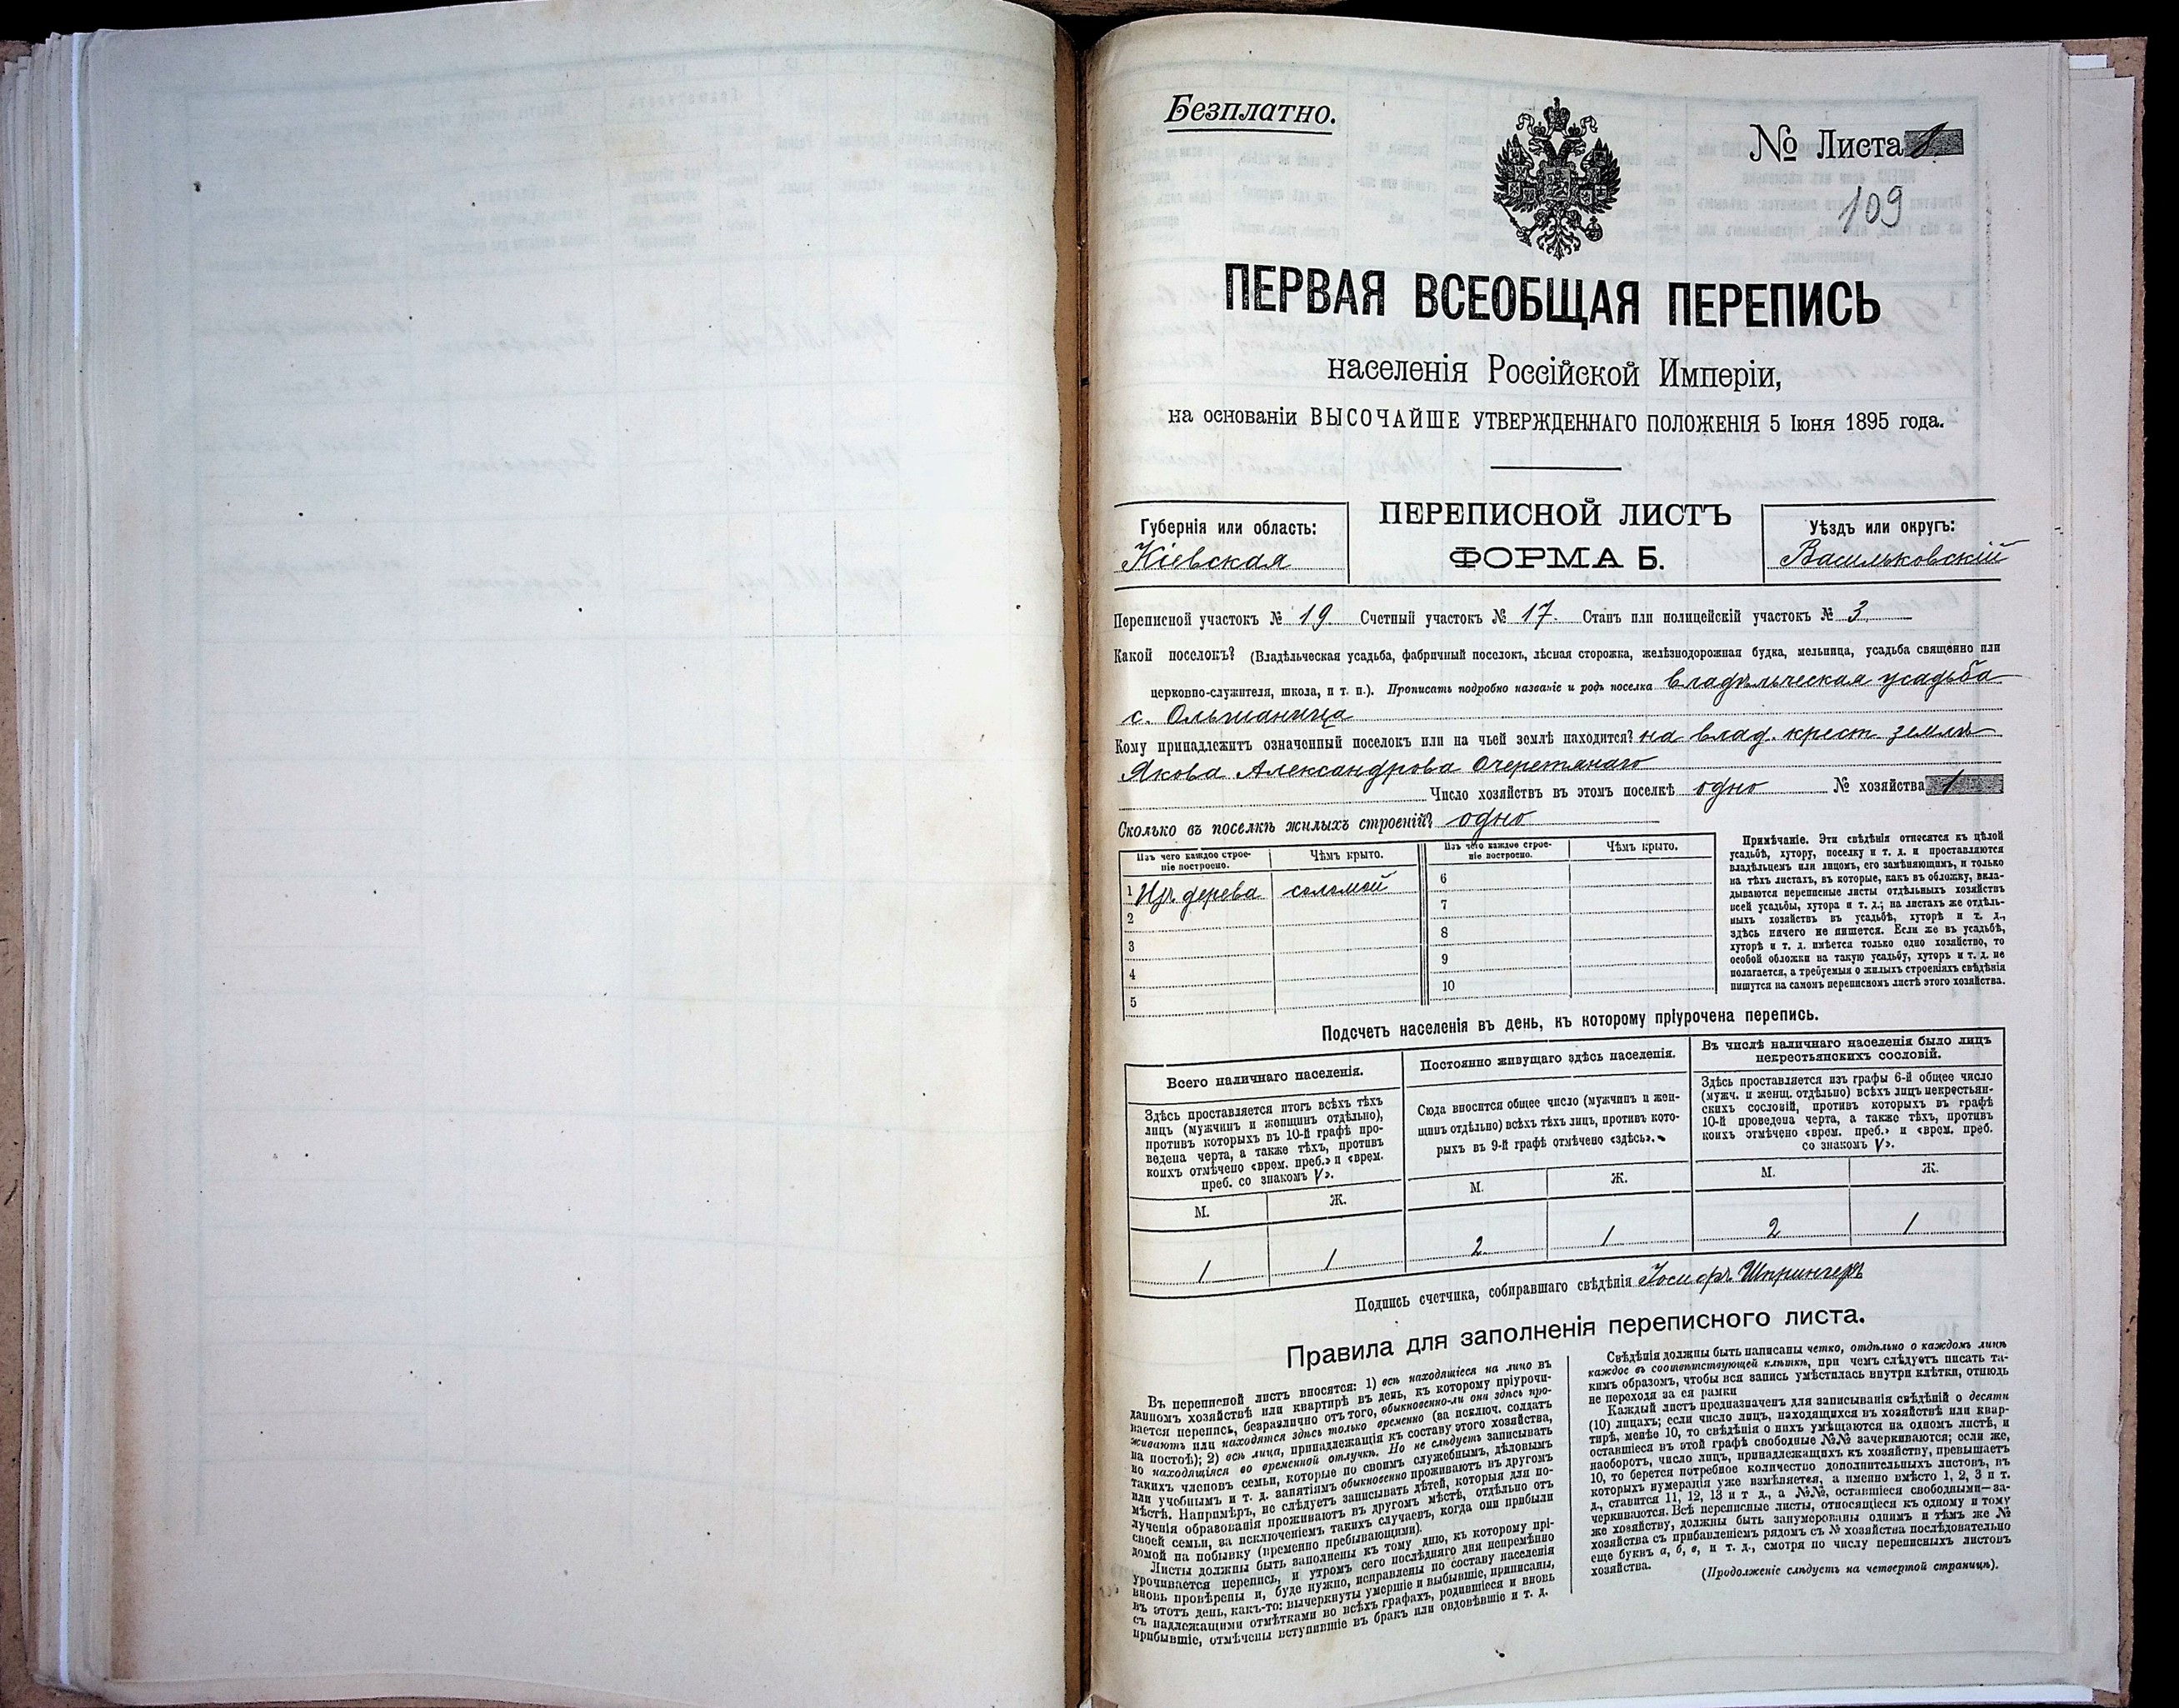 Безплатно.
№ Листа 8
109
ПЕРВАЯ ВСЕОБЩАЯ ПЕРЕПИСЬ
населенія Россійской Имперіи,
на основаніи ВЫСОЧАЙШЕ УТВЕРЖДЕННАГО ПОЛОЖЕНІЯ 5 Іюня 1895 года.
Губернія или область:
Кіевская
ПЕРЕПИСНОЙ ЛИСТЪ
ФОРМА Б.
Уѣздъ или округъ:
Васильковскій
Переписной участокъ № 19. Счетный участокъ № 17. Станъ или полицейскій участокъ № 3
Какой поселокъ? (Владѣльческая усадьба, фабричный поселокъ, лѣсная сторожка, желѣзнодорожная будка, мельница, усадьба священно или
церковно-служителя, школа, и т. п.). Прописать подробно названіе и родъ поселка владѣльческая усадьба
с. Ольшаница
Кому принадлежитъ означенный поселокъ или на чьей землѣ находится? на влад. крест. землѣ
Якова Александрова Очеретянаго
Число хозяйствъ въ этомъ поселкѣ одно № хозяйства 1
Сколько въ поселкѣ жилыхъ строеній? одно
Изъ чего каждое строе-
ніе построено.
Чѣмъ крыто.
Изъ чего каждое строе-
ніе построено.
Чѣмъ крыто.
1 Изъ дерева соломой
2
3
4
5
6
7
8
9
10
Примѣчаніе. Эти свѣдѣнія относятся къ цѣлой
усадьбѣ, хутору, поселку и т. д. и проставляются
владѣльцемъ или лицомъ, его замѣняющимъ, и только
на тѣхъ листахъ, въ которые, какъ въ обложку, вкла-
дываются переписные листы отдѣльныхъ хозяйствъ
всей усадьбы, хутора и т. д.; на листахъ же отдѣль-
ныхъ хозяйствъ въ усадьбѣ, хуторѣ и т. д.,
здѣсь ничего не пишется. Если же въ усадьбѣ,
хуторѣ и т. д. имѣется только одно хозяйство, то
особой обложки на такую усадьбу, хуторъ и т. д. не
полагается, а требуемыя о жилыхъ строеніяхъ свѣдѣнія
пишутся на самомъ переписномъ листѣ этого хозяйства.
Подсчетъ населенія въ день, къ которому пріурочена перепись.
Всего наличнаго населенія.
Здѣсь проставляется итогъ всѣхъ тѣхъ
лицъ (мужчинъ и женщинъ отдѣльно),
противъ которыхъ въ 10-й графѣ про-
ведена черта, а также тѣхъ, противъ
коихъ отмѣчено «врем. преб.» и «врем.
преб. со знакомъ V».
М. Ж.
1 1
Постоянно живущаго здѣсь населенія.
Сюда вносится общее число (мужчинъ и жен-
щинъ отдѣльно) всѣхъ тѣхъ лицъ, противъ кото-
рыхъ въ 9-й графѣ отмѣчено «здѣсь».
М. Ж.
2 1
Въ числѣ наличнаго населенія было лицъ
некрестьянскихъ сословій.
Здѣсь проставляется изъ графы 6-й общее число
(мужч. и женщ. отдѣльно) всѣхъ лицъ некрестьян-
скихъ сословій, противъ которыхъ въ графѣ
10-й проведена черта, а также тѣхъ, противъ
коихъ отмѣчено «врем. преб.» и «врем. преб.
со знакомъ V».
М. Ж.
2 1
Подпись счетчика, собиравшаго свѣдѣнія Іосифъ Шпрингеръ
Правила для заполненія переписного листа.
Въ переписной листъ вносятся: 1) всѣ находящіеся на лицо въ
данномъ хозяйствѣ или квартирѣ въ день, къ которому пріурочи-
вается перепись, безразлично отъ того, обыкновенно-ли они здѣсь про-
живаютъ или находятся здѣсь только временно (за исключ. солдатъ
на постоѣ); 2) всѣ лица, принадлежащія къ составу этого хозяйства,
но находящіяся во временной отлучкѣ. Но не слѣдуетъ записывать
такихъ членовъ семьи, которые по своимъ служебнымъ, дѣловымъ
или учебнымъ и т. д. занятіямъ обыкновенно проживаютъ въ другомъ
мѣстѣ. Напримѣръ, не слѣдуетъ записывать дѣтей, которыя для по-
лученія образованія проживаютъ въ другомъ мѣстѣ, отдѣльно отъ
своей семьи, за исключеніемъ такихъ случаевъ, когда они прибыли
домой на побывку (временно пребывающими).
Листы должны быть заполнены къ тому дню, къ которому прі-
урочивается перепись, и утромъ сего послѣдняго дня непремѣнно
вновь провѣрены и, буде нужно, исправлены по составу населенія
въ этотъ день, какъ-то: вычеркнуты умершіе и выбывшіе, приписаны,
съ надлежащими отмѣтками во всѣхъ графахъ, родившіеся и вновь
прибывшіе, отмѣчены вступившіе въ бракъ или овдовѣвшіе и т. д.
Свѣдѣнія должны быть написаны четко, отдѣльно о каждомъ лицѣ
каждое въ соотвѣтствующей клѣткѣ, при чемъ слѣдуетъ писать та-
кимъ образомъ, чтобы вся запись умѣстилась внутри клѣтки, отнюдь
не переходя за ея рамки
Каждый листъ предназначенъ для записыванія свѣдѣній о десяти
(10) лицахъ; если число лицъ, находящихся въ хозяйствѣ или квар-
тирѣ, менѣе 10, то свѣдѣнія о нихъ умѣщаются на одномъ листѣ, и
оставшіеся въ этой графѣ свободные №№ зачеркиваются; если же,
наоборотъ, число лицъ, принадлежащихъ къ хозяйству, превышаетъ
10, то берется потребное количество дополнительныхъ листовъ, въ
которыхъ нумерація уже измѣняется, а именно вмѣсто 1, 2, 3 и т.
д., ставится 11, 12, 13 и т д., а №№, оставшіеся свободными—за-
черкиваются. Всѣ переписные листы, относящіеся къ одному и тому
же хозяйству, должны быть занумерованы однимъ и тѣмъ же №
хозяйства съ прибавленіемъ рядомъ съ № хозяйства послѣдовательно
еще буквъ а, б, в, и т. д., смотря по числу переписныхъ листовъ
хозяйства.
(Продолженіе слѣдуетъ на четвертой страницѣ).